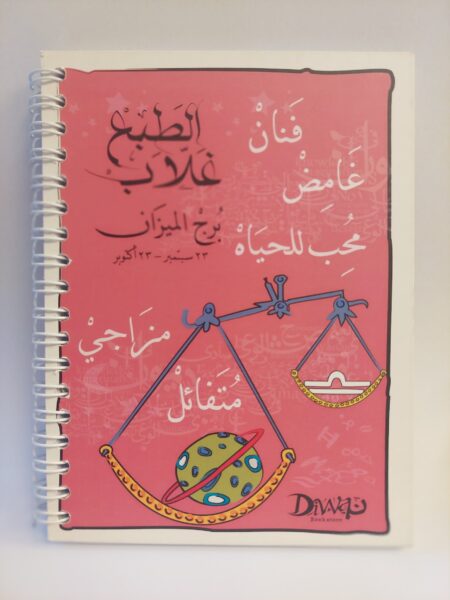 الطبع
غلاب
برج الميزان
٢٣ سبتمبر - ٢٣ أكتوبر
فنانْ
غامِضْ
محُب للحياه
مزاجيْ
مُتفائلْ
Diwan ديوان
Bookstore